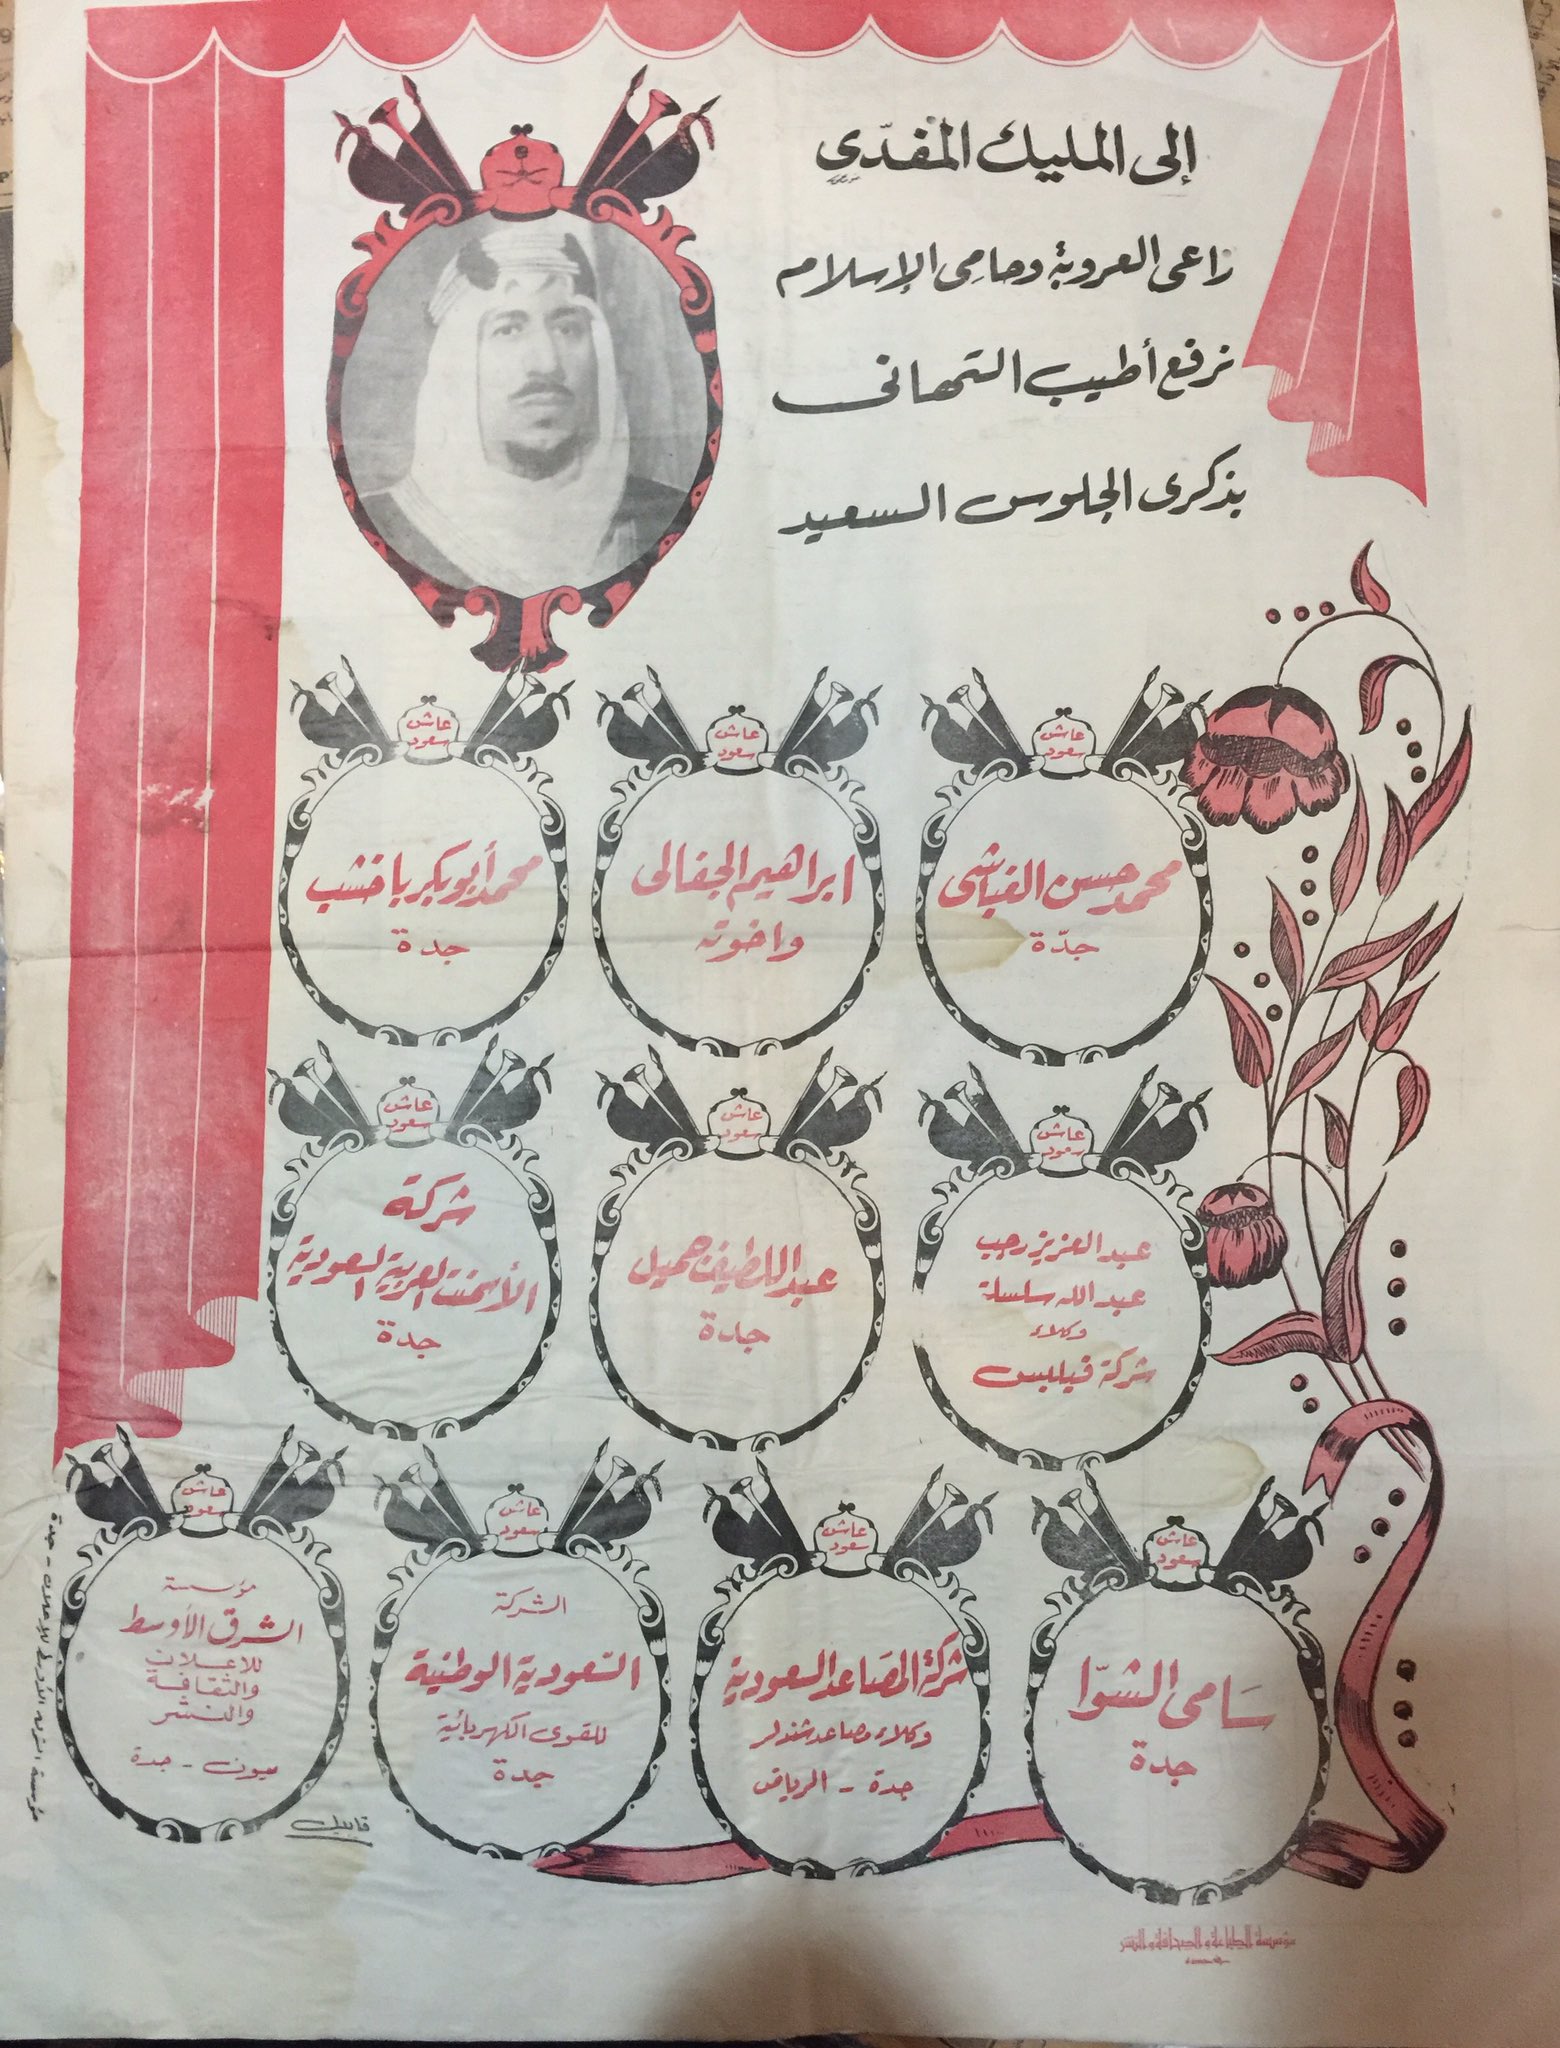 إلى المليك المفدّى
راعى العروبة وحامِى الإسلام
نرفع أطيب التهانى
بذكرى الجلوس السعيد
عاش
سعود
محمد حسن الغباشى
جدّة
عاش
سعود
ابراهيم الجفالى
واخوته
عاش
سعود
محمد أبو بكر باخشب
جدة
عاش
سعود
عبد العزيز رجب
عبد الله سلسلة
وكلاء
شركة فيليبس
عاش
سعود
عبد اللطيف جميل
جدة
عاش
سعود
شركة
الأسمنت العربية السعودية
جدة
عاش
سعود
سَامى الشوّا
جدة
عاش
سعود
شركة المصَاعد السعودية
وكلاء مصاعد شندلر
جدة - الرياض
عاش
سعود
الشركة
السّعودية الوطنية
للقوى الكهربائية
جدة
عاش
سعود
مؤسسة
الشرق الأوسط
للاعلان
والثقافة
والنشر
جدة
مؤسسة الشرق الأوسط للإعلان - جدة
مؤسسة الطباعة والصحافة والنشر